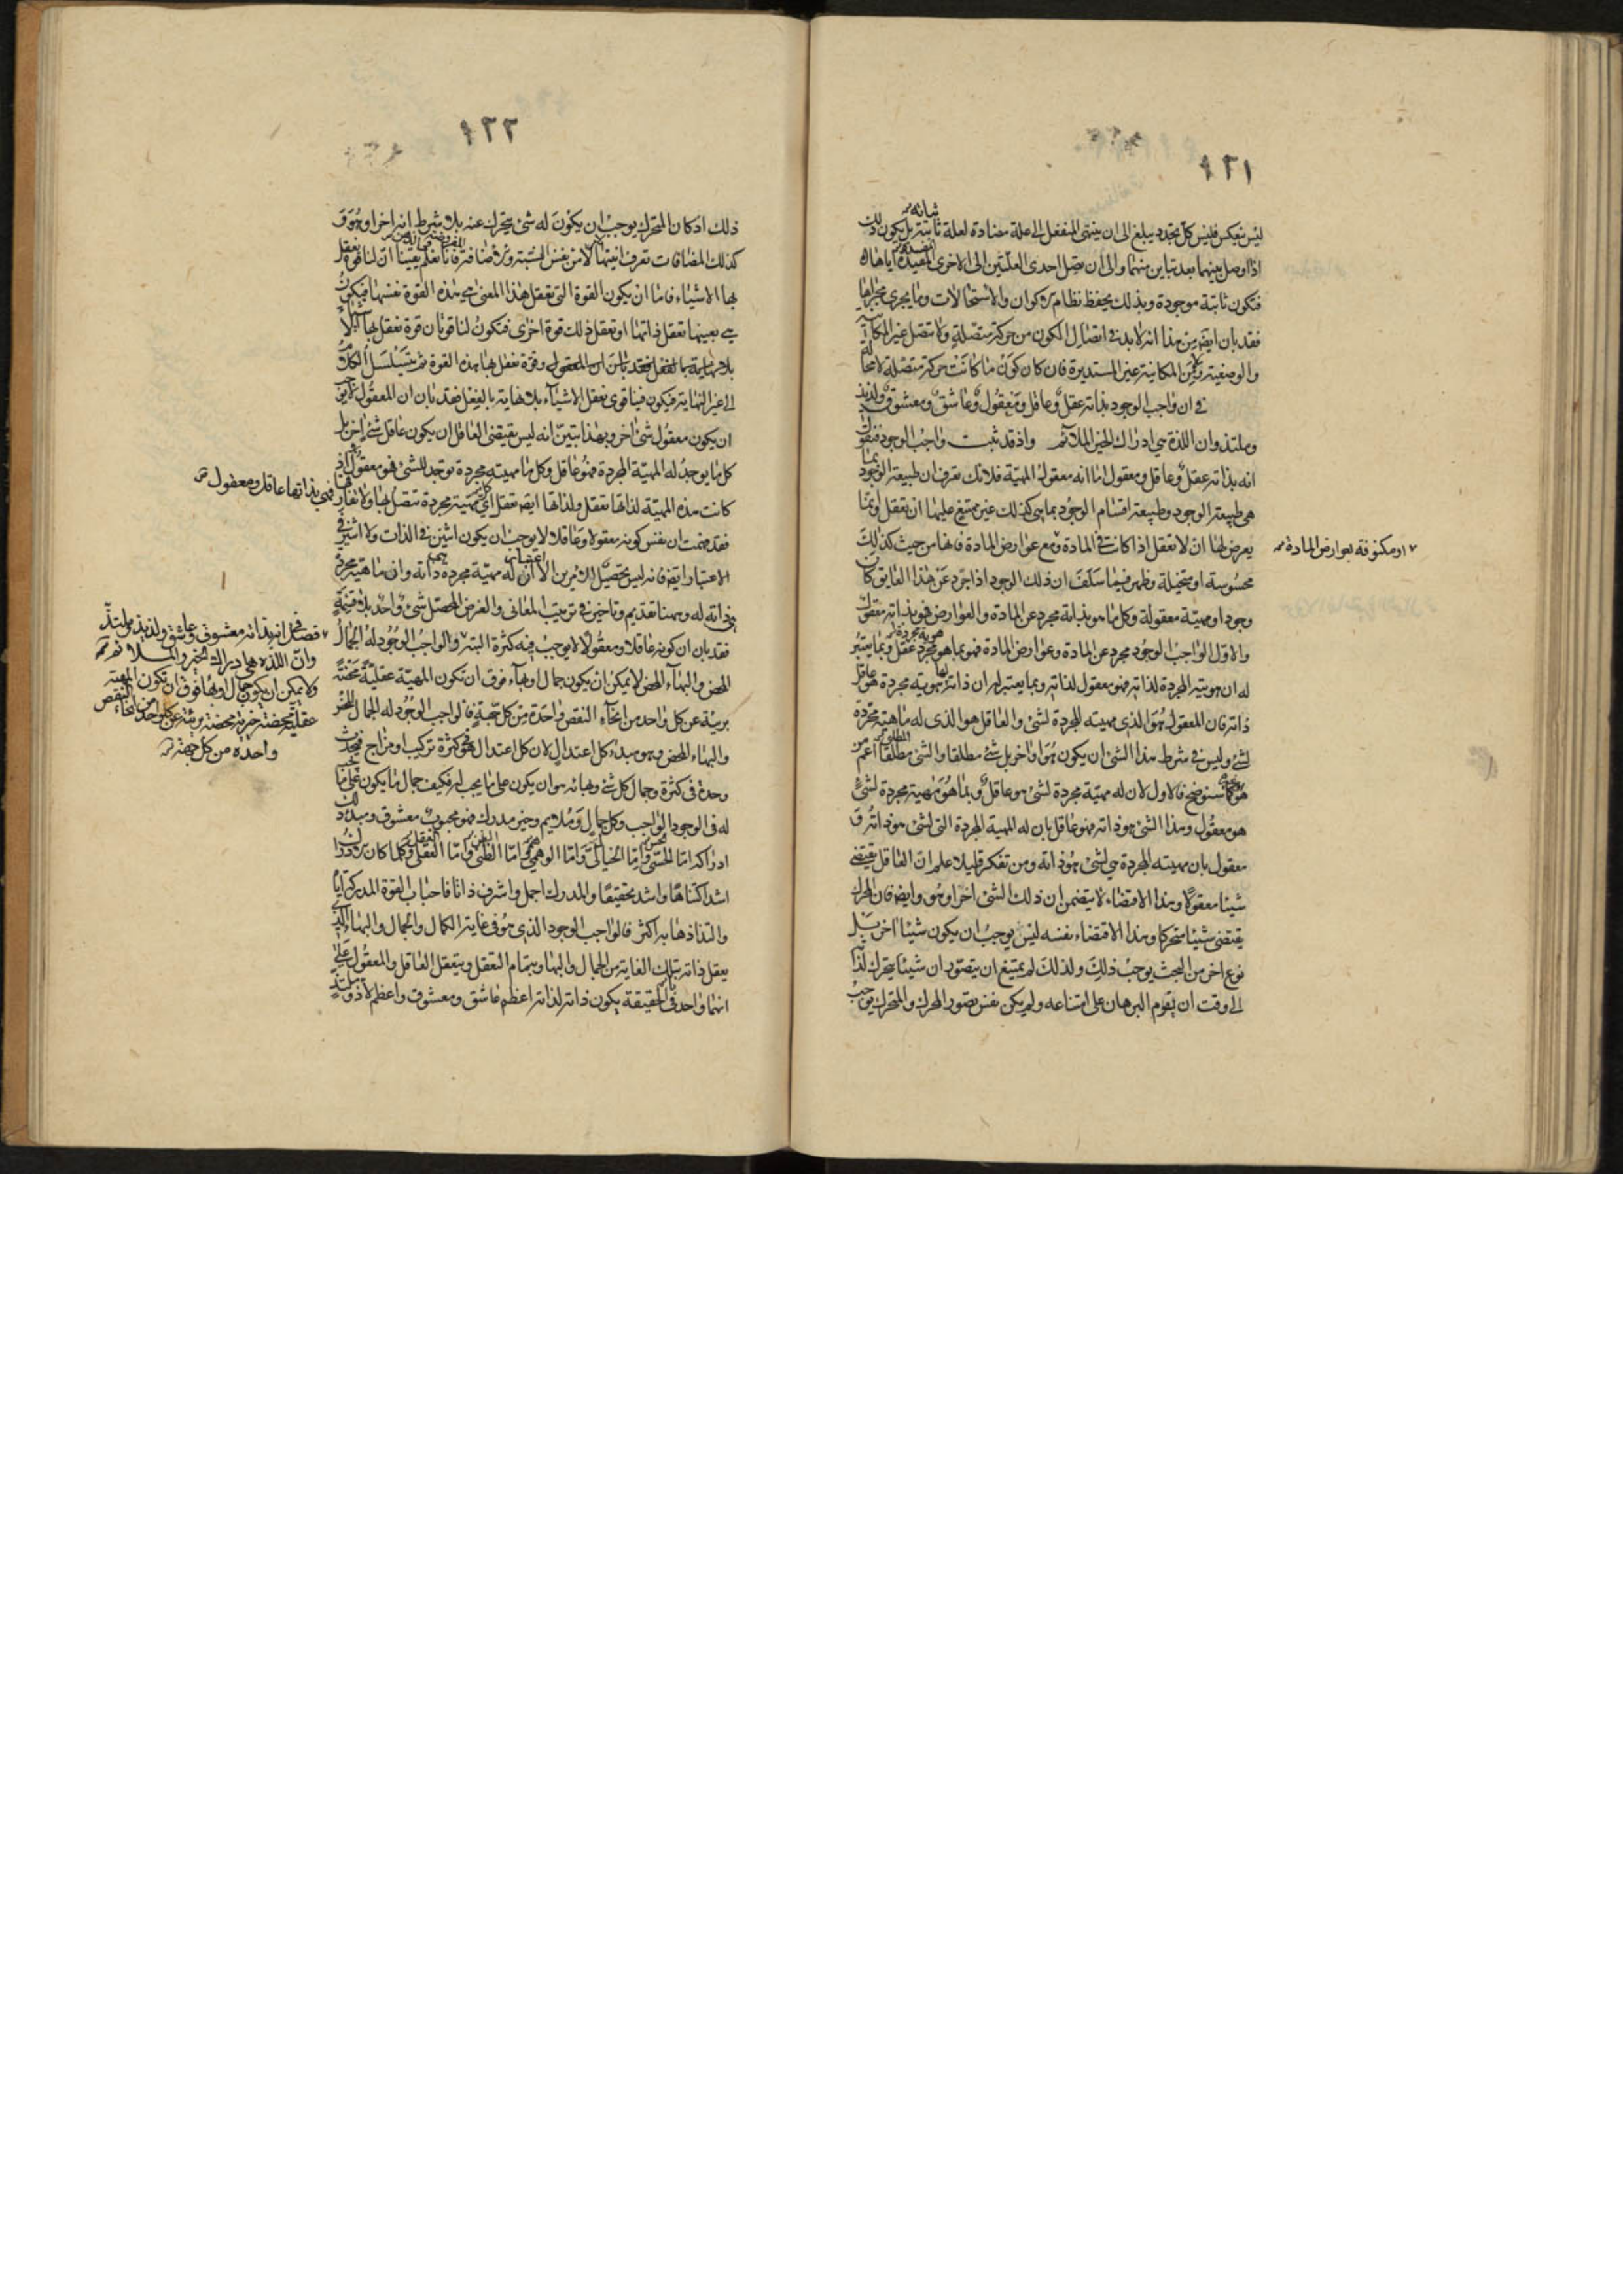 ١٢١
ليس نعكس فليس كل تجدد يبلغ الى ان ينتهى المنفعل الى علة مضادة لعلة ثابتة بل يكون ذلك
اذا وصل بينهما بعد تباين منهما والى ان تصل احدى العلتين الى الاخرى اياها
فتكون ثابتة موجودة وبذلك يحفظ نظام الاكوان والاستحالات وما يجرى مجراها
فقد بان ايضا من هذا انه لا بد فى اتصال الكون من حركة متصلة ولا تتصل غير المكانية
والوضعية ومن المكانية غير المستديرة فان كان كون ما كانت حركة متصلة لا محالة
فى ان واجب الوجود بذاته عقل وعاقل ومعقول وعاشق ومعشوق ولذيذ
وملتذ وان اللذة هى ادراك الخير الملائم واذ قد ثبت واجب الوجود فنقول
انه بذاته عقل وعاقل ومعقول اما انه معقول المهية فلانك تعرف ان طبيعة الوجود بما
هى طبيعة الوجود وطبيعة اقسام الوجود بما هى كذلك غير ممتنع عليها ان تعقل وانما
يعرض لها ان لا تعقل اذا كانت فى المادة ومع عوارض المادة فانها من حيث كذلك
او مكنوفة بعوارض المادة
محسوسة او متخيلة وظهر فيما سلف ان ذلك الوجود اذا جرد عن هذا العايق كان
وجودا ومهية معقولة وكل ما هو بذاته مجرد عن المادة والعوارض فهو بذاته معقول
والاول الواجب الوجود مجرد عن المادة وعوارض المادة فهو بما هو مجرد عقل وبما يعتبر
له ان هويته المجردة لذاته فهو معقول لذاته وبما يعتبر له ان ذاته لها هوية مجردة هو عاقل
ذاته فان المعقول هو الذى مهيته المجردة لشئ والعاقل هو الذى له ماهية مجردة
لشئ وليس فى شرط هذا الشئ ان يكون هو او اخر بل شئ مطلقا والشئ مطلقا اعم من
هو كما سنوضح فالاول لان له مهية مجردة لشئ هو عاقل وبما هو مهية مجردة لشئ
هو معقول وهذا الشئ هو ذاته فهو عاقل بان له المهية المجردة التى لشئ هو ذاته و
معقول بان مهيته المجردة هى لشئ هو ذاته ومن تفكر قليلا علم ان العاقل يقتضى
شيئا معقولا وهذا الاقتضاء لا يتضمن ان ذلك الشئ اخر او هو وايضا فان المحرك
يقتضى شيئا متحركا وهذا الاقتضاء نفسه ليس يوجب ان يكون شيئا اخر بل
نوع اخر من البحث يوجب ذلك ولذلك لم يمتنع ان يتصور ان شيئا يتحرك لذاته
الى وقت ان يقوم البرهان على امتناعه ولم يكن نفس تصور المحرك والمتحرك يوجب
١٢٢
ذلك اذ كان المتحرك يوجب ان يكون له شئ يتحرك عنه بلا شرط انه اخر او هو و
كذلك المضافات تعرف اثنينيتها لا من نفس النسبة والاضافة فانا نعلم يقينا ان لنا قوة نعقل
بها الاشياء فاما ان يكون القوة التى تعقل هذا المعنى هى هذه القوة نفسها فيكون
هى بعينها تعقل ذاتها او تعقل ذلك قوة اخرى فتكون لنا قوتان قوة نعقل بها الاشياء
وقوة نعقل بها هذه القوة ثم يتسلسل الكلام
الى غير النهاية فيكون فينا قوى تعقل الاشياء بلا نهاية بالفعل فقد بان ان المعقول لا يوجب
ان يكون معقول شئ اخر وبهذا تبين انه ليس يقتضى العاقل ان يكون عاقل شئ اخر بل
كل ما يوجد له المهية المجردة فهو عاقل وكل ما مهيته مجردة توجد للشئ فهو معقول اذ
كانت هذه المهية لذاتها تعقل ولذاتها ايضا تعقل كل مهية مجردة تتصل بها ولا تفارقها
فهى بذاتها عاقل ومعقول
فقد فهمت ان نفس كونه معقولا وعاقلا لا يوجب ان يكون اثنين فى الذات ولا اثنين فى
الاعتبار ايضا فانه ليس تحصيل الامرين الا اعتبار ان له مهية مجردة هى ذاته وان ماهية مجردة
هى ذاته له وههنا تقديم وتاخير فى ترتيب المعانى والغرض المحصل شئ واحد بلا قسمة
فقد بان ان كونه عاقلا ومعقولا لا يوجب فيه كثرة البتة والواجب الوجود له الجمال
فصل فى انه بذاته معشوق وعاشق ولذيذ وملتذ
وان اللذة هى ادراك الخير الملائم
ولا يمكن ان يكون جمال او بهاء فوق ان تكون المهية
عقلية محضة خيرية محضة بريئة عن كل واحد من انحاء النقص
واحدة من كل جهة
المحض والبهاء المحض لا يمكن ان يكون جمال او بهاء فوق ان تكون المهية عقلية محضة
بريئة عن كل واحد من انحاء النقص واحدة من كل جهة فالواجب الوجود له الجمال المحض
والبهاء المحض وهو مبدء كل اعتدال لان كل اعتدال هو كثرة تركيب او مزاج فيحدث
وحدة فى كثرة وجمال كل شئ وبهائه هو ان يكون على ما يجب له فكيف جمال ما يكون على ما
له فى الوجود الواجب وكل جمال وملايم وخير مدرك فهو محبوب معشوق ومبدء ذلك
ادراكه اما الحسى واما الخيالى واما الوهمى اما الظنى واما العقلى وكلما كان الادراك
اشد اكتناها واشد تحقيقا والمدرك اجمل واشرف ذاتا فاحباب القوة المدركة اياه
والتذاذها به اكثر فالواجب الوجود الذى هو فى غاية الكمال والجمال والبهاء الذى
يعقل ذاته بتلك الغاية من الجمال والبهاء وبتمام التعقل ويتعقل العاقل والمعقول على
انهما واحد فى الحقيقة يكون ذاته لذاته اعظم عاشق ومعشوق واعظم لاذ وملتذ